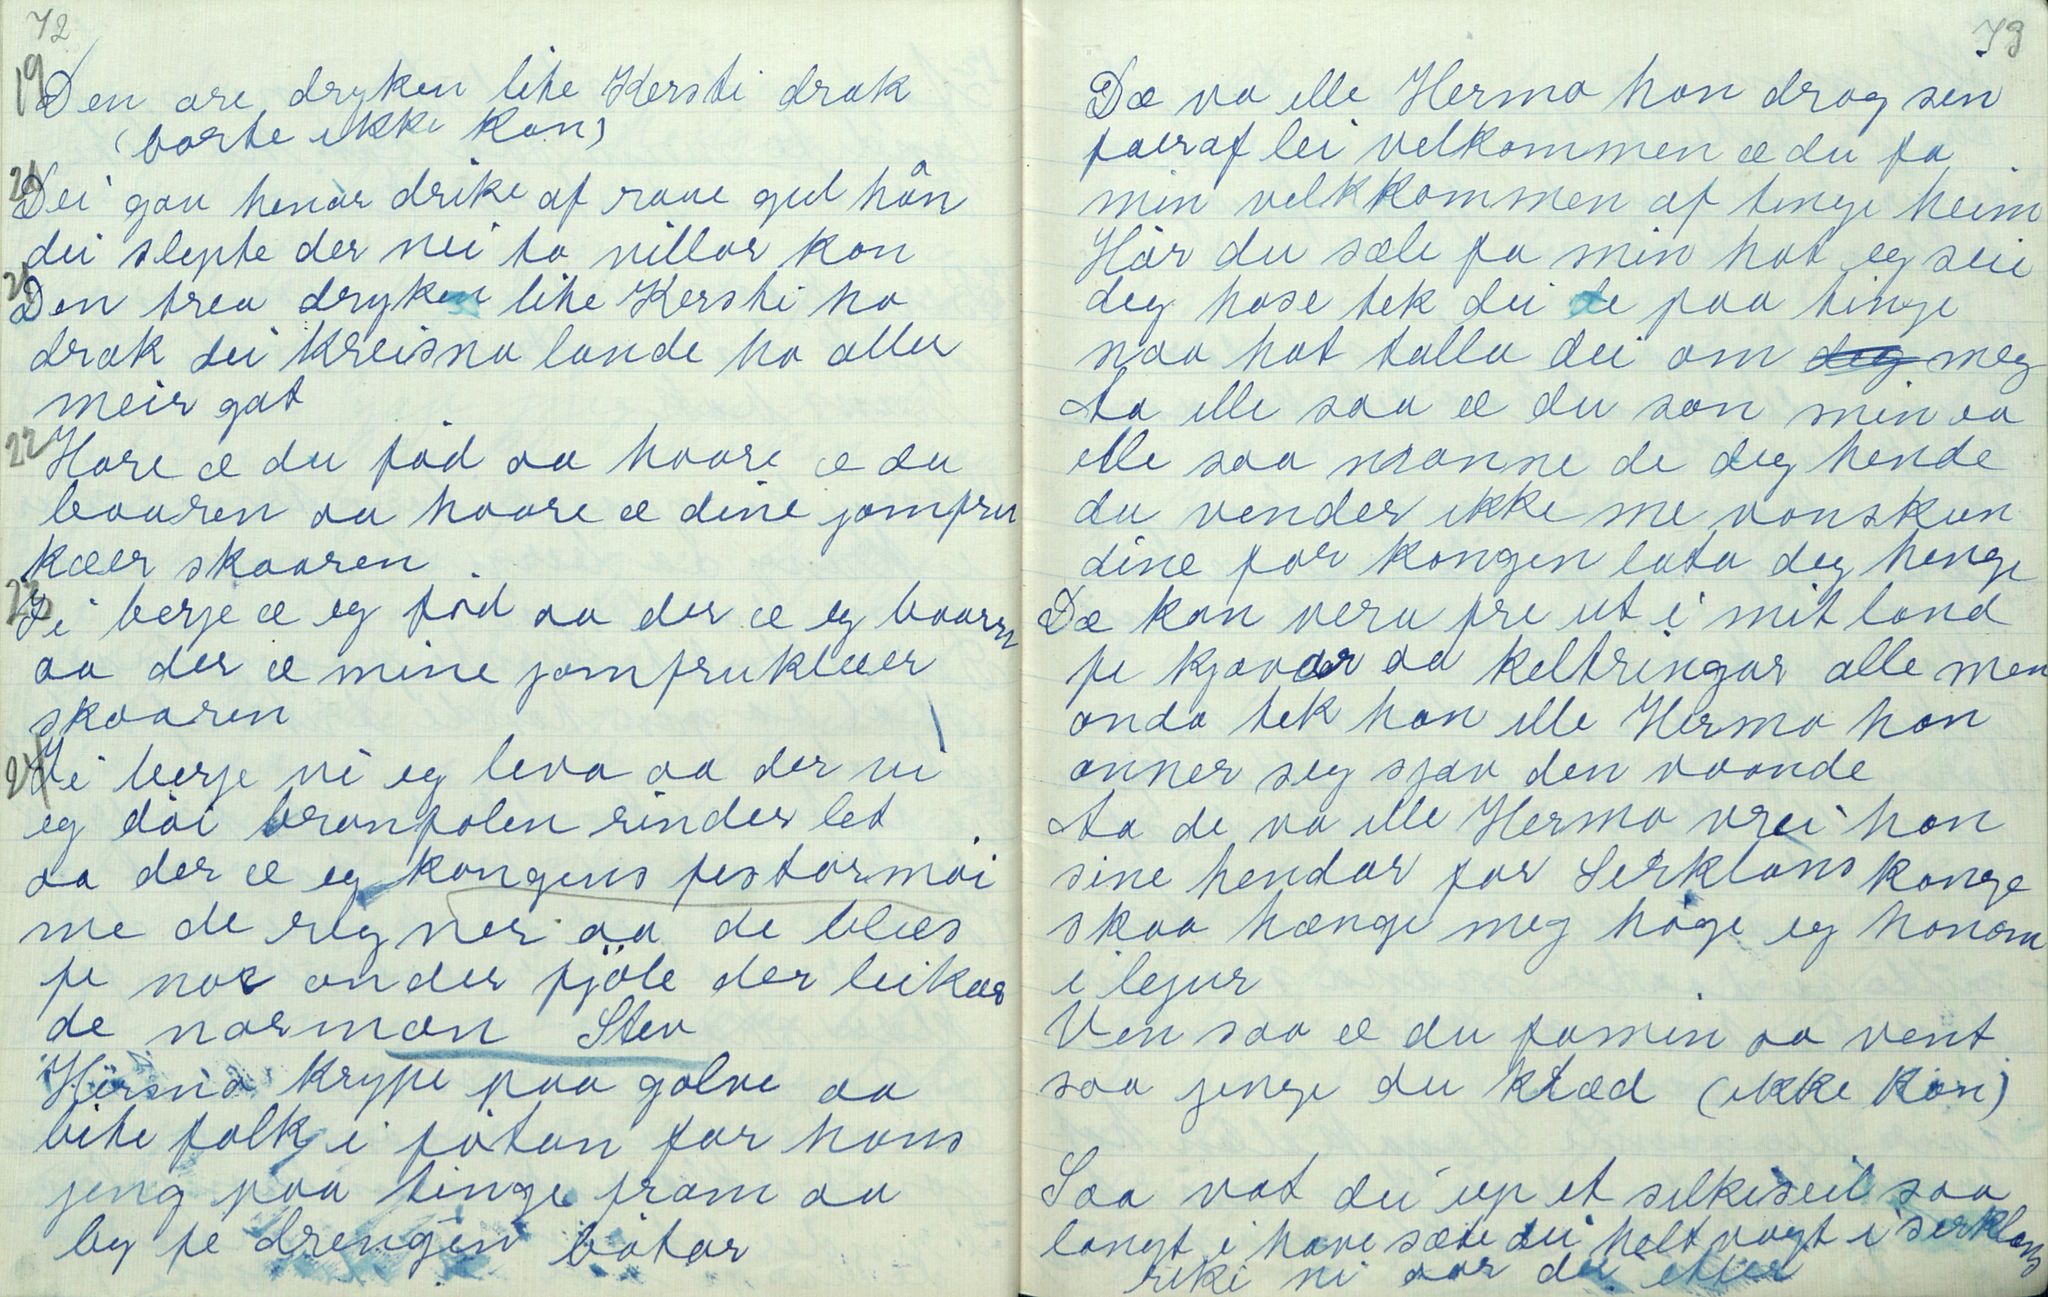 72
19 Den are dryken lite Kersti drak
(borte ikke kan)
20 Dei gav henar drike af raue gul hån
dei slepte der nei ta villar kon
21 Den trea dryken lite Kersti ho
drak dei kreisna lande ho aller
meir gat
22 Hore æ du fød aa haare æ du
baaren aa haare æ dine jomfru
kæer skaaren
23 I berje æ eg fød aa der æ eg baaren
aa der æ mine jomfruklæer
skaaren
24 I berje vi eg leva aa der vi
eg døi bronpolen rinder let
aa der æ eg kongens festarmøi
me de regner aa de blæs
fe nor onder fjöle der leikar
de norman Stev
Hermo krype paa golve aa
bite folk i føtan far hans
jeng paa tinge fram aa
by fe drengen bøtar
73
Dæ va ille Hermo han drog sen
faer af lei velkommen æ du fa
min velkkommen af tinge heim
Hår du sæle fa min hat eg seie
deg hose tek dei de paa tinge
naa hat talla dei om meg
ta ille saa æ du son min aa
ille saa manne de deg hende
du vender ikke me vonskun
dine for kongen lata deg henge
Dæ kan vera fre ut i mit land
fe kjavar aa keltringar alle men
anda tek han ille Hermo han
anner seg sjav den vaande
ta de va ille Hermo vrei han
sine hendar for Serklans konge
skaa hænge meg høge eg honom
i lejur
Ven saa æ du famin aa vent
saa jenge du klæd (ikke kan)
Saa vat dei up et silkiseil saa
langt i have sæte dei helt vagt i serklans
riki ni aar dei etter